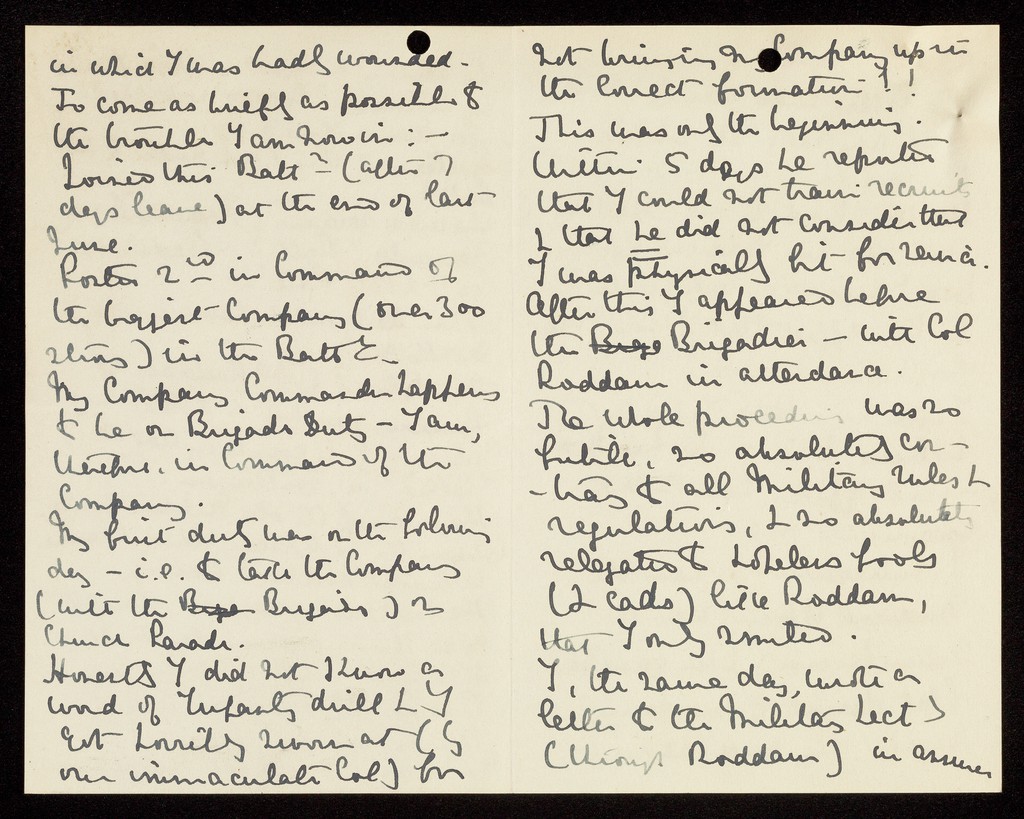 in which I was badly wounded -
To come as briefly as possible to
the trouble I am now in : -
Joined this Batt n (after 7
days leave) at the end of last
June.
Posted 2nd in Command of
the biggest Company (over 300
strong) in the Batt n.
My Company Commander happens
to be on Brigade Duty - I am,
therefore, in Command of the
Company.
My first duty was on the following
day - i.e. to take the Company
(with the Brigade) to
Church Parade.
Honestly I did not know a
word of Infantry drill & I
got horribly sworn at (by
our immaculate Col) for
not bringing my Company up in
the correct formation!!
This was only the beginning.
Within 5 days he reported
that I could not train recruits
& that he did not consider that
I was physically fit for service.
After this I appeared before
the Brigadier - with Col
Roddam in attendance.
The whole proceeding was so
futile, so absolutely con-
-trary to all Military rules &
regulations, & so absolutely
relegated to hopeless fools
(& cads) like Roddam,
that I only smiled.
I, the same day, wrote a
letter to the Military Sect
(through Roddam) in answer